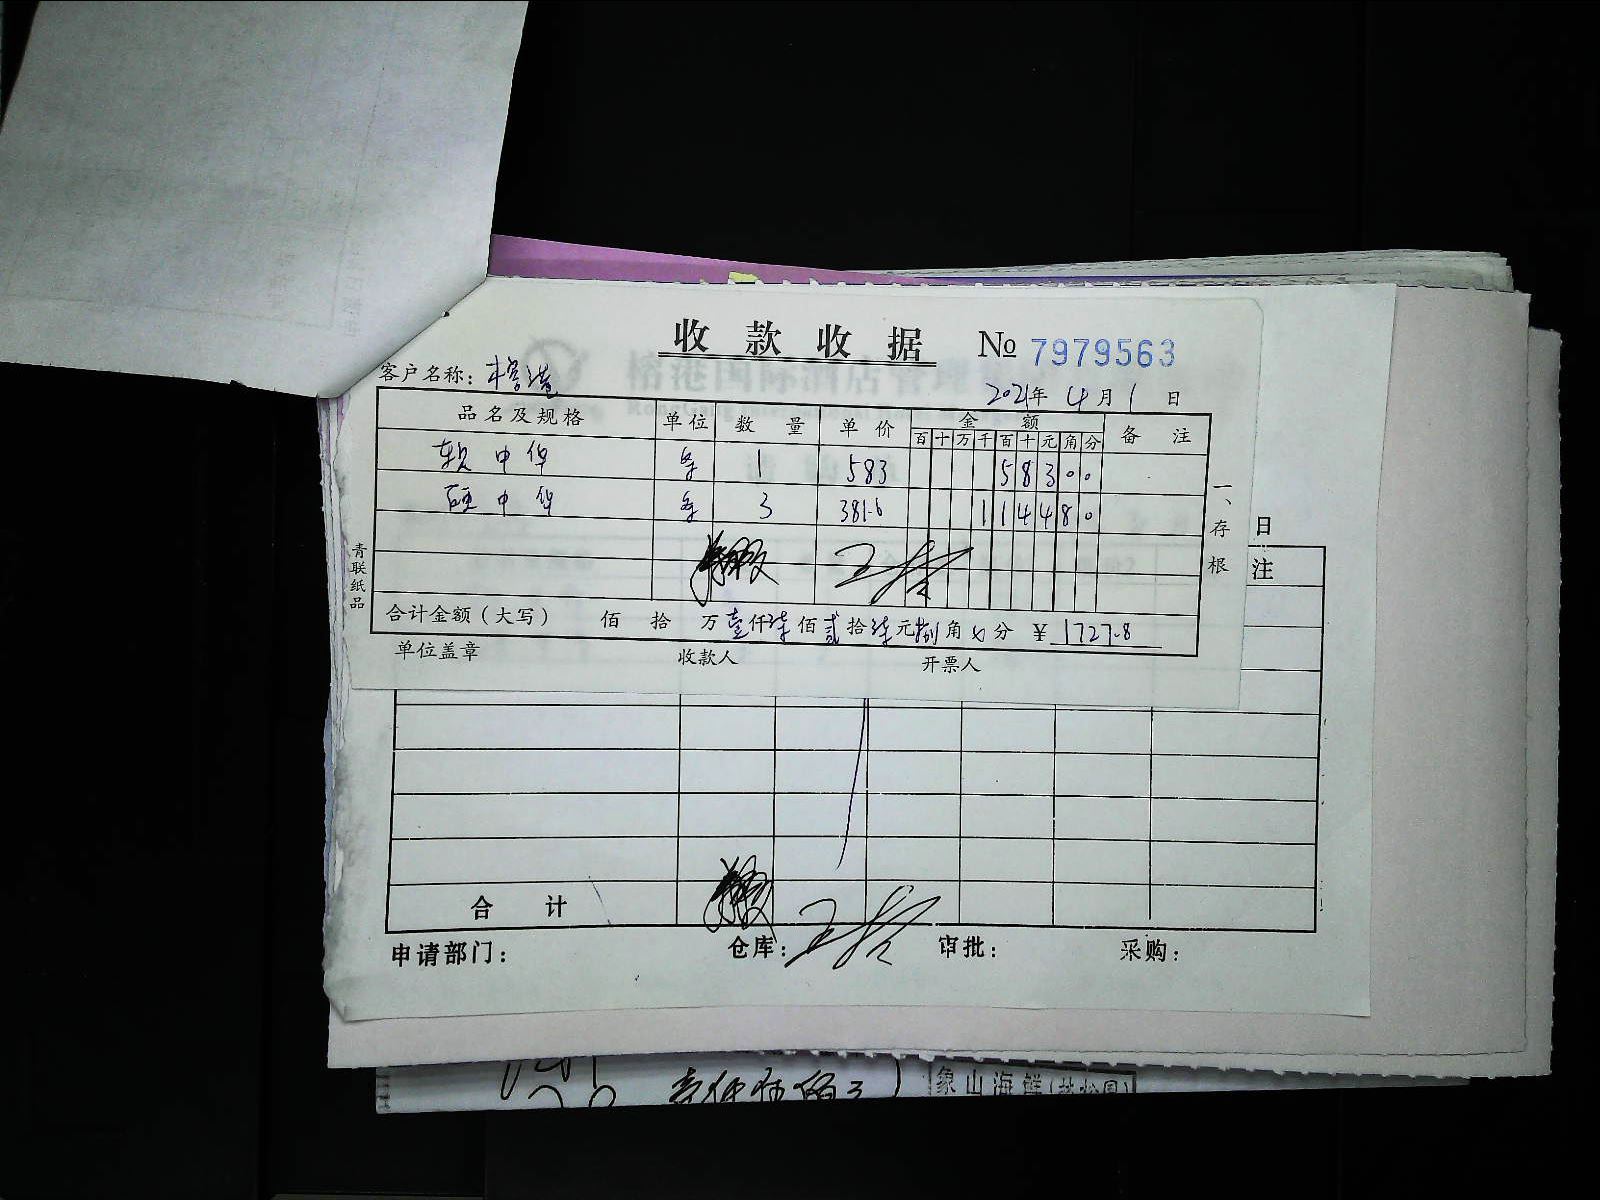 收款收据 № 7979563
客户名称：榕港 2021年 4月 1日
品名及规格 单位 数量 单价 金额 备注
百 十 万 千 百 十 元 角 分
软中华 条 1 583 5 8 3 0 0
硬中华 条 3 381.6 1 1 4 4 8 0
合计金额（大写） 佰 拾 万 壹仟柒佰贰拾柒元捌角 分 ￥ 1727.8
单位盖章 收款人 开票人
一、存根
青联纸品
日
注
合计
申请部门： 仓库： 审批： 采购：
象山海鲜